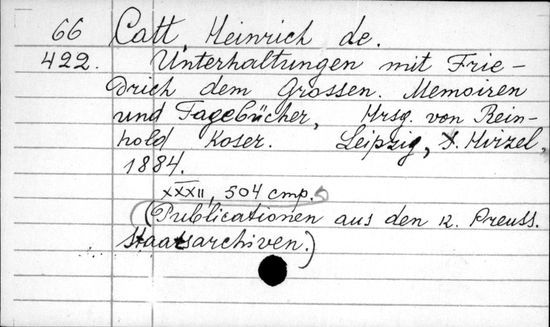 66 Catt, Heinrich de.
422. Unterhaltungen mit Frie-
drich dem Grossen. Memoiren
und Tagebücher, Hrsg. von Rein-
hold Koser. Leipzig, S. Hirzel,
1884.
XXXII, 504 стр.
(Publicationen aus den K. Preuss.
Staatsarchiven.)